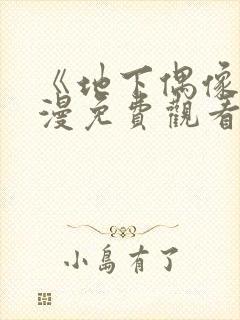 《地下偶像
漫免費觀看
小島有了